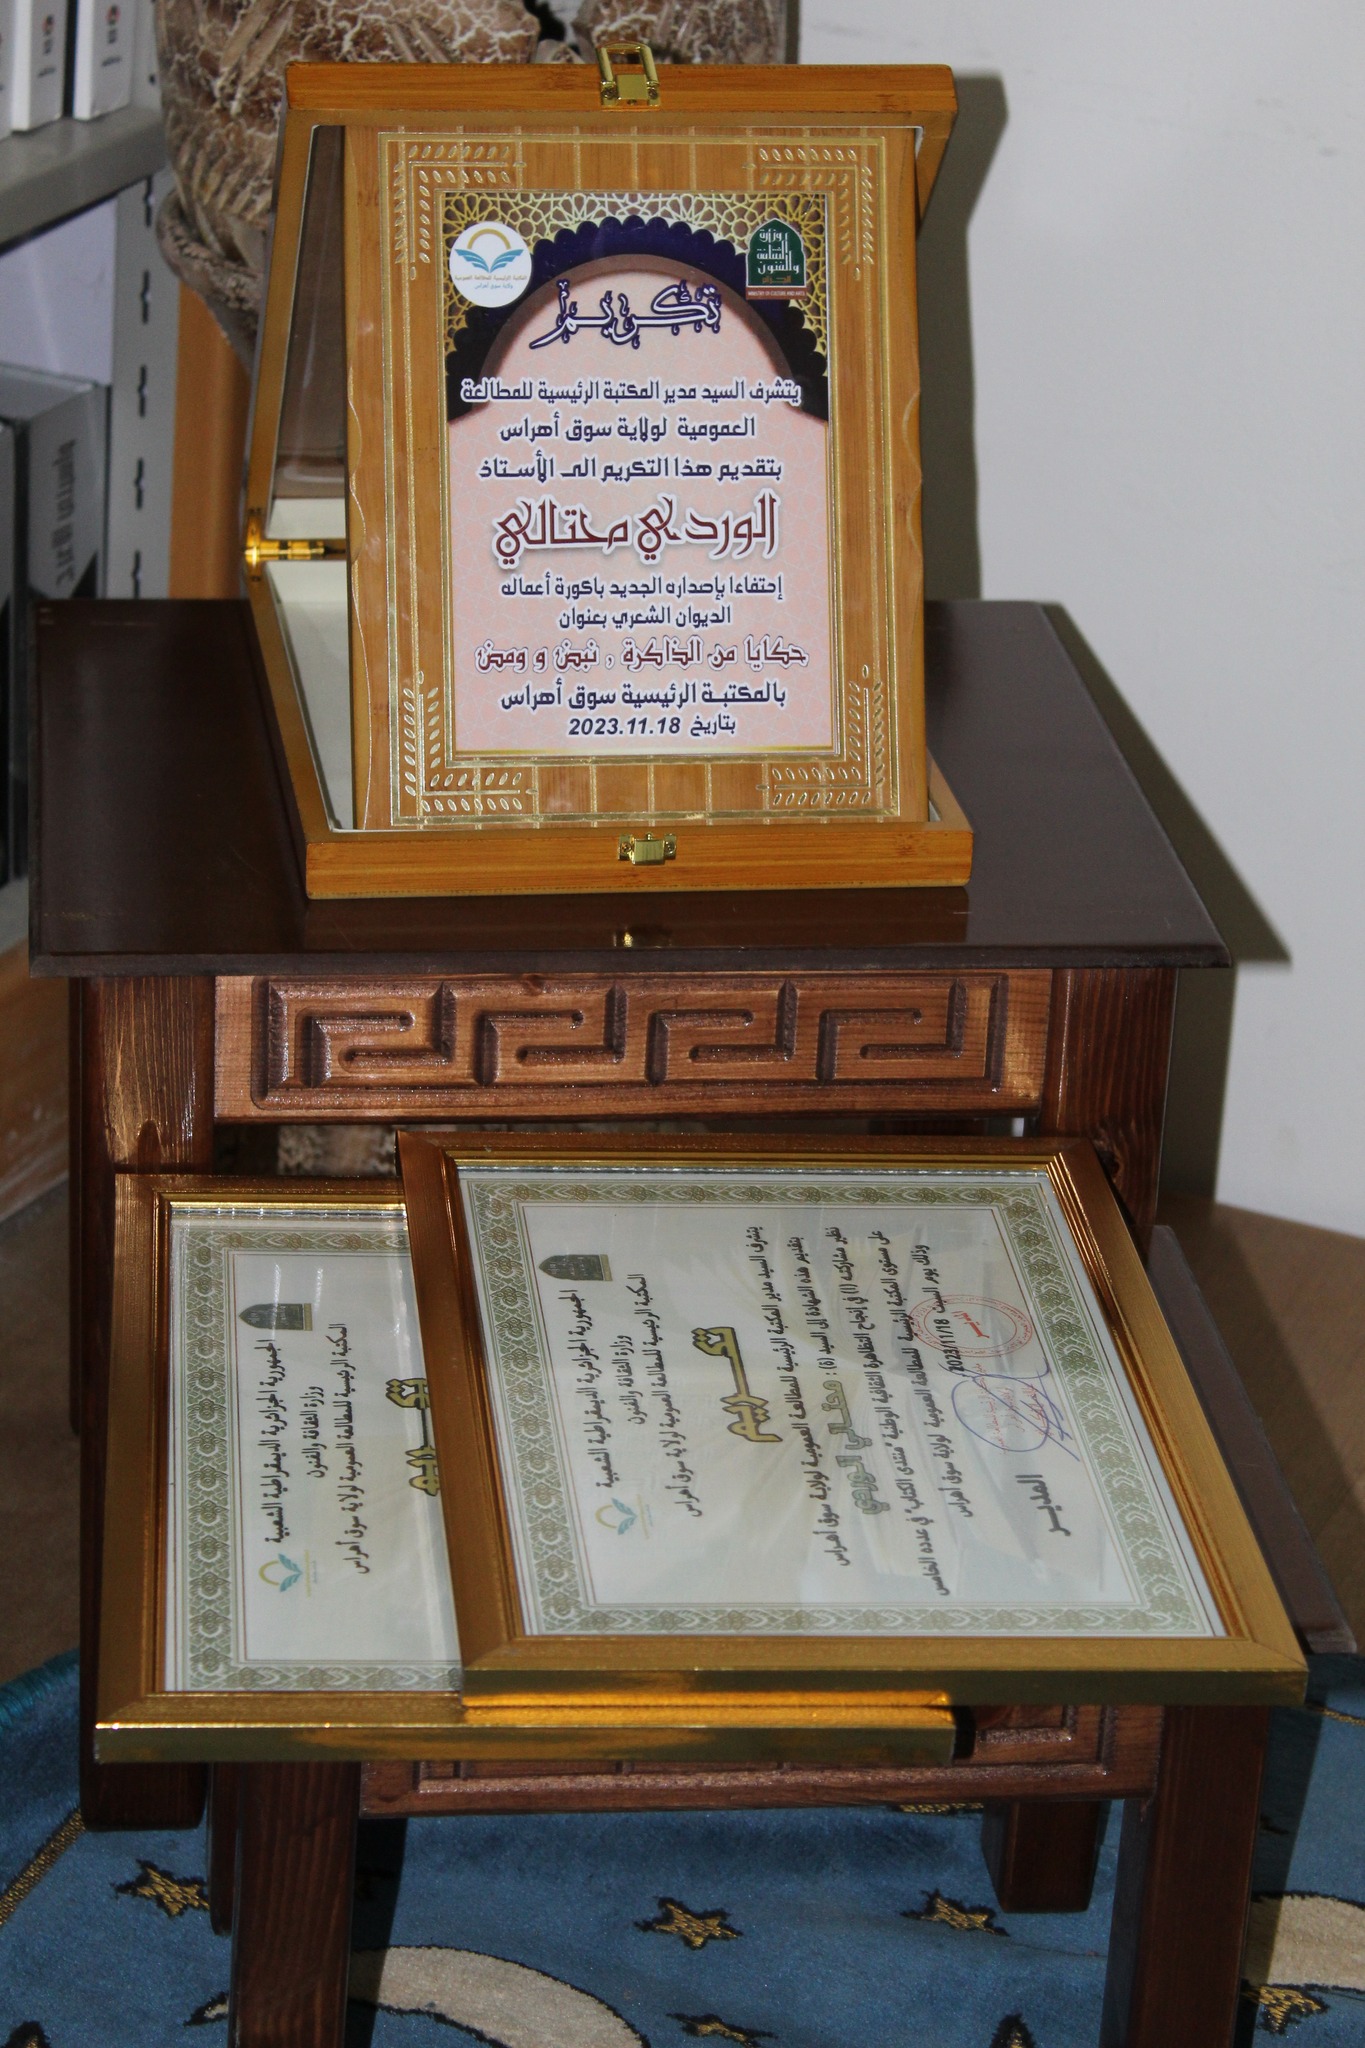 تكريم
وزارة
الثقافة
والفنون
الجزائر
MINISTRY OF CULTURE AND ARTS
المكتبة الرئيسية للمطالعة العمومية
ولاية سوق أهراس
يتشرف السيد مدير المكتبة الرئيسية للمطالعة
العمومية لولاية سوق أهراس
بتقديم هذا التكريم الى الأستاذ
الوردي محتالي
إحتفاءا بإصداره الجديد باكورة أعماله
الديوان الشعري بعنوان
حكايا من الذاكرة , نبض و ومض
بالمكتبة الرئيسية سوق أهراس
بتاريخ 2023.11.18
الجمهورية الجزائرية الديمقراطية الشعبية
وزارة الثقافة والفنون
المكتبة الرئيسية للمطالعة العمومية لولاية سوق أهراس
تكـــريم
يتشرف السيد مدير المكتبة الرئيسية للمطالعة العمومية لولاية سوق أهراس
بتقديم هذه الشهادة إلى السيد (ة) : محتالي الوردي
نظير مشاركته (ا) في إنجاح التظاهرة الثقافية الوطنية "منتدى الكتاب" في عدده الخامس
على مستوى المكتبة الرئيسية للمطالعة العمومية لولاية سوق أهراس
وذلك يوم السبت 2023/11/18
المديـــر
الجمهورية الجزائرية الديمقراطية الشعبية
وزارة الثقافة والفنون
المكتبة الرئيسية للمطالعة العمومية لولاية سوق أهراس
تكـــريم